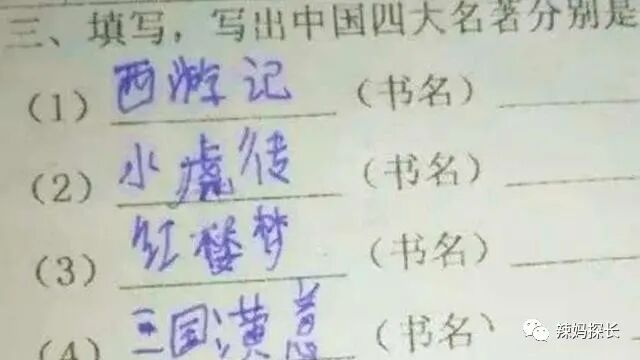 三、填写，写出中国四大名著分别是
(1) 西游记 (书名)
(2) 水虎传 (书名)
(3) 红楼梦 (书名)
(4) 三国潢意 (书名)
辣妈探长